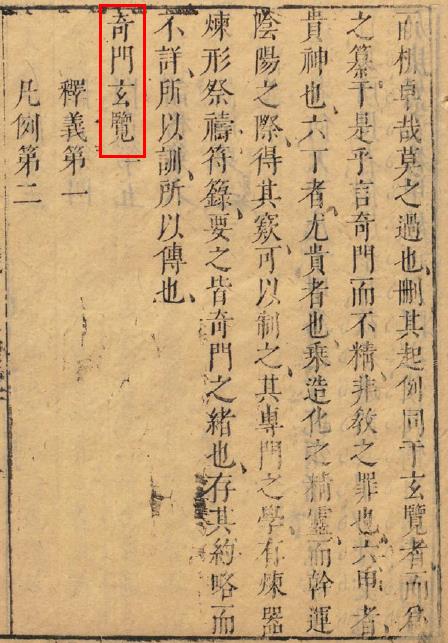 而槪卓哉莫之過也刪其起例同于玄覽者而爲
之纂于是乎言奇門而不精非敎之罪也六甲者
貴神也六丁者尤貴者也乘造化之精靈而幹運
陰陽之際得其竅可以制之其專門之學有煉器
煉形祭禱符籙要之皆奇門之緒也存其約略而
不詳所以訓所以傳也
奇門玄覽
釋義第一
凡例第二